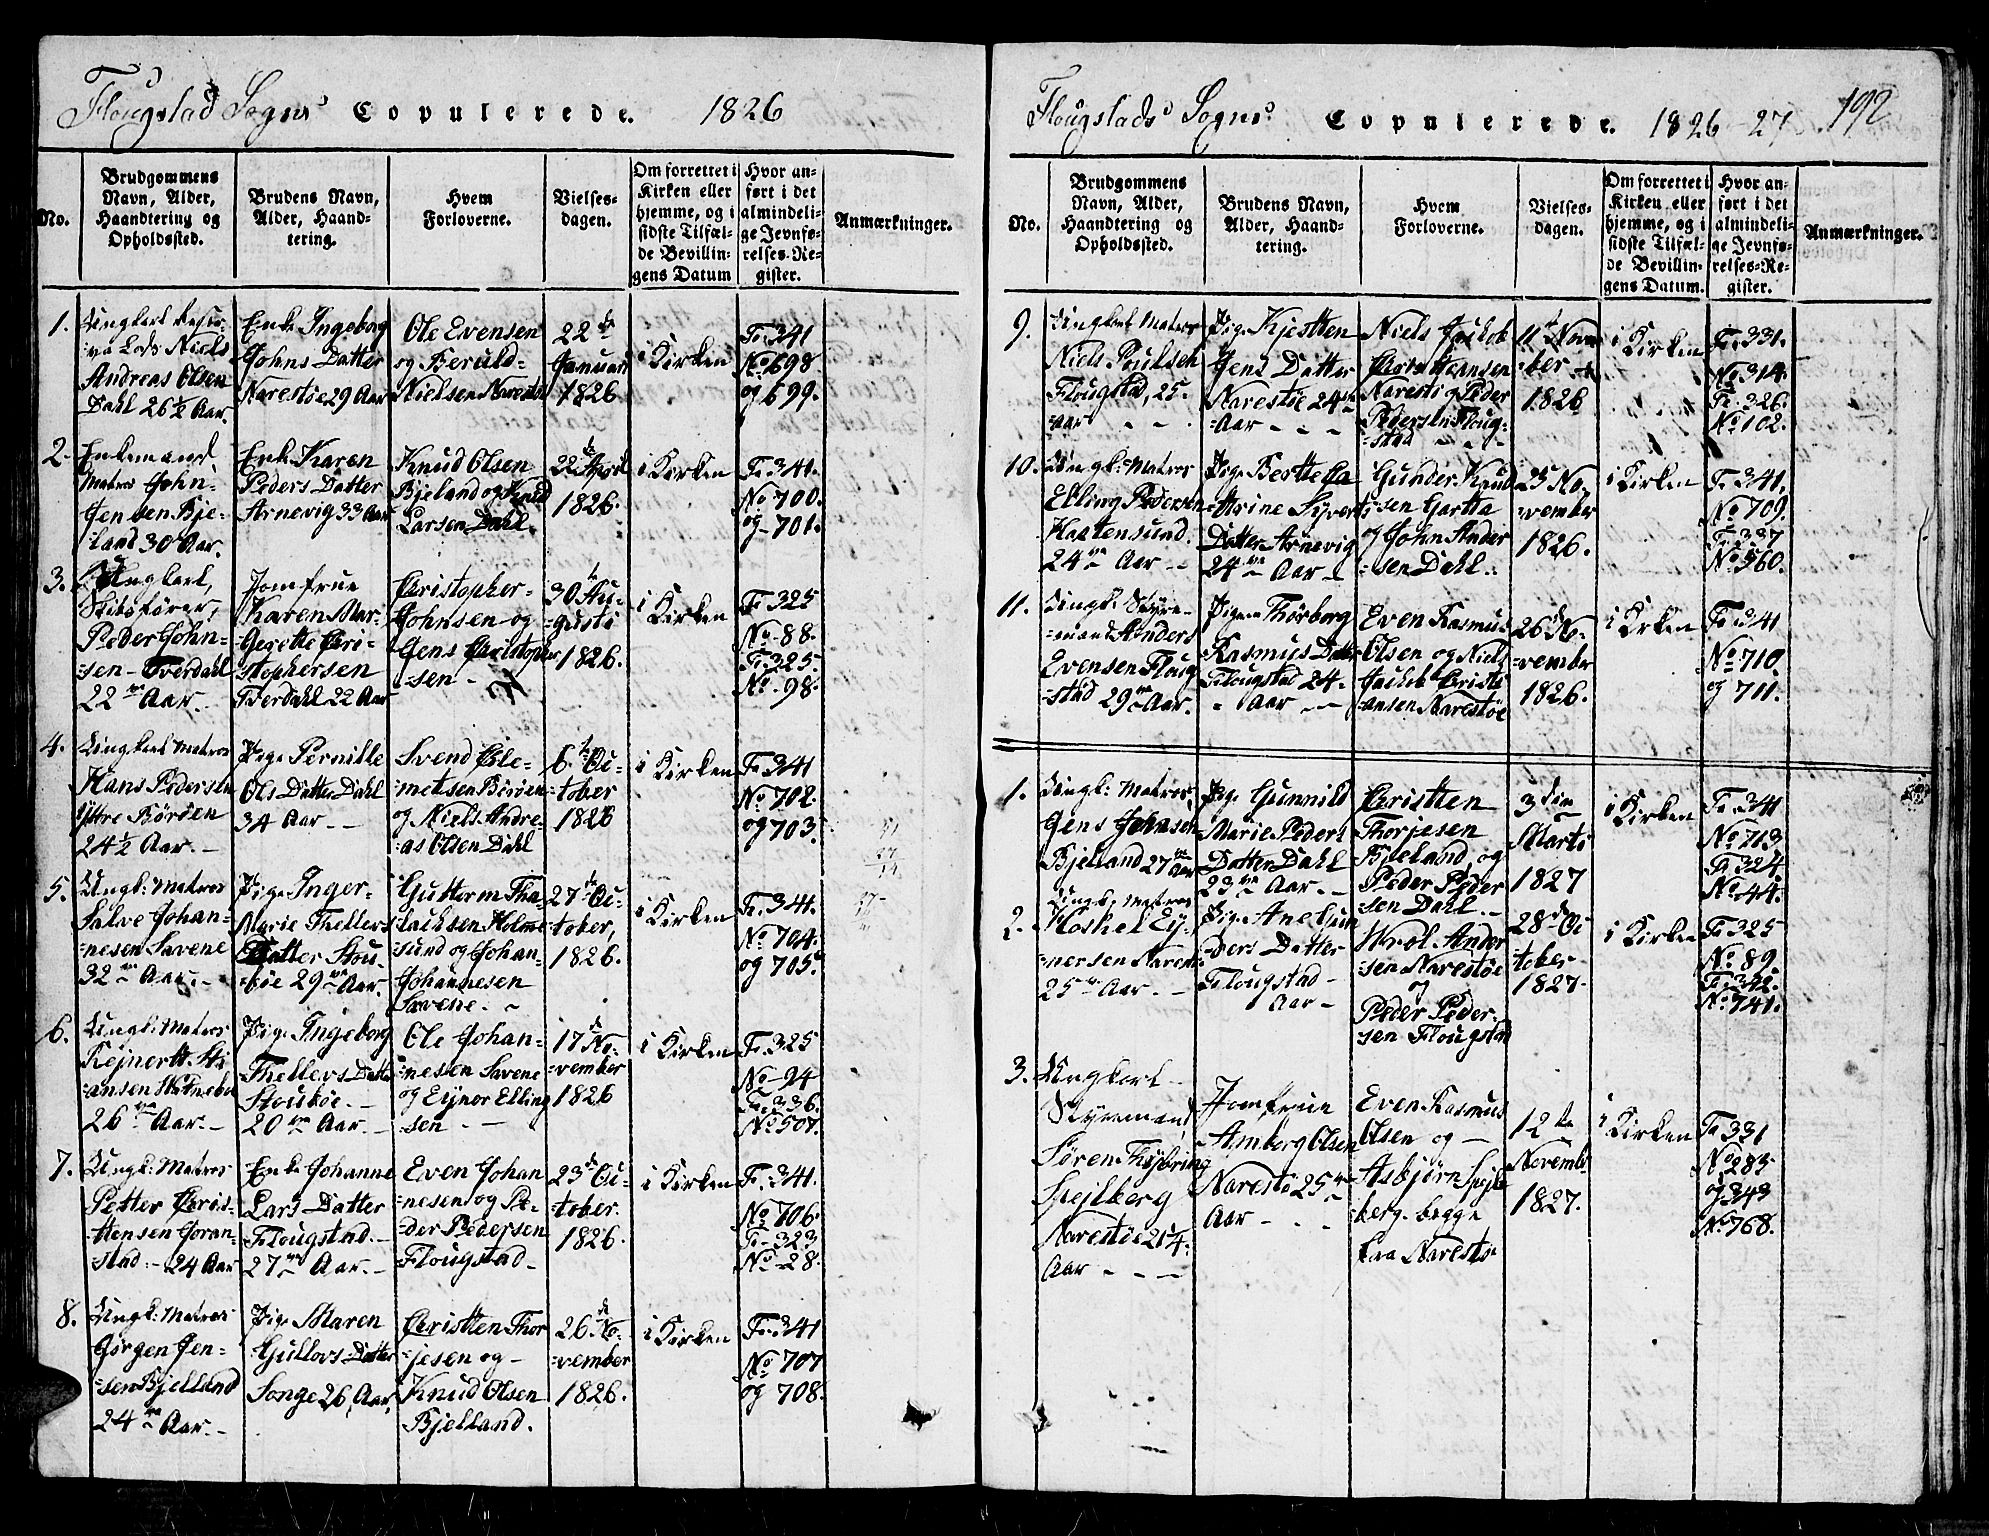 Flougstad Sogns Copulerede. 1826
No.
Brudgommens Navn, Alder, Haandtering og Opholdssted.
Brudens Navn, Alder, Haandtering.
Hvem Forloverne.
Vielsesdagen.
Om forrettet i Kirken eller hjemme, og i sidste Tilfælde Bevillingens Datum
Hvor anført i det almindelige Jevnførelses-Register.
Anmærkninger.
1.
Ungkarl
Lods Niels
Andreas Olsen
Dahl 26½ Aar.
Enke Ingeborg
Johns Datter
Narestöe 29 Aar
Ole Evensen
og Beruld
Nielsen Narestö
22de
Januari
1826
i Kirken
Fo. 341
No. 698
og 699.
2.
Enkemand
Matros John
Jensen Bje-
land 30 Aar.
Enke Karen
Peders Datter
Arnevig 33 Aar
Knud Olsen
Bjeland og Knud
Larsen Dahl.
22d April
1826.
i Kirken
Fo. 341.
No 700.
og - 701.
3.
Ungkarl,
Skibsförer,
Peder John-
sen Tverdahl
22 Aar.
Jomfrue
Karen Mar-
Gerette Cri-
stophersen
Tverdahl 22 Aar
Christopher
Johnsen og
Jens Christopher
-sen -
30 Au-
-gusti
1826.
i Kirken
Fo. 325
No - 88.
Fo. 325.
No. - 98.
4.
Ungkarl Matros
Hans Pedersen
Yttre Böröen
24½ Aar. -
Pige Pernille
Ols Datter Dahl
34 Aar - -
Svend Cle-
-metsen Böröen
og Niels Andre-
-as Olsen Dahl
6. Oc-
-tober
1826
i Kirken
Fo. 341
No 702.
og 703.
5.
Ungk: Matros
Salve Johan-
nesen Savene
32 Aar. -
Pige Inger-
Marie Thellevs
Datter Stou-
-böe 29 Aar.
Guttorm Tha-
lachsen Holme
sund og Johan-
Johannesen
Savene. -
27 Oc-
-tober,
1826.
i Kirken
Fo. 341.
No 704.
og 705.
6.
Ungk: Matros
Rejnert
ansen
26 Aar. -
Pige Ingeborg
Thellevs Datter
Stouböe. -
20 Aar. -
Ole Johan-
-nesen Savene
og Ejnor Elling
sen. -
17 No-
-vember
1826
i Kirken
Fo. 325
No - 94
Fo. 336.
No 507.
7.
Ungk: Matros
Petter Chris-
tensen Goran-
stad. - 24 Aar
Enke Johanne
Lars Datter
Flougstad. -
27 Aar. -
Even Johan
-nesen og Pe-
-der Pedersen
Flougstad -
23 Oc-
-tober.
1826.
i Kirken
Fo. 341.
No 706.
Fo - 323
No - 28.
8.
Ungk: Matros
Jörgen Jen-
-sen Bjelland
24 Aar. -
Pige Maren
Gullovs Datter
Songe 26 Aar.
Christten Thor
-jesen og -
Knud Olsen
Bjelland.
26 No-
-vember
1826.
i Kirken
Fo. 341
No 707
og 708.
Flougstads Sogns Copulerede. 1826-27. 192
No.
Brudgommens Navn, Alder, Haandtering og Opholdssted.
Brudens Navn, Alder, Haandtering.
Hvem Forloverne.
Vielsesdagen.
Om forrettet i Kirken eller hjemme, og i sidste Tilfælde Bevillingens Datum.
Hvor anført i det almindelige Jevnførelses-Register.
Anmærkninger.
9.
Ungkarl Matros
Niels Poulsen
Flougstad, 25.
-aar - -
Pige Kjestten
Jens Datter
Narestöe 24
-Aar - - -
Niels Jackob
Christiansen
Narestö og Peder
Pedersen Floug-
-stad
11 Novem
-ber
1826
i Kirken
Fo. 331.
No 314.
Fo. 326.
No 102.
10.
Ungk: Matros
Elling Pedersen
24 Aar - -
Pige Berthe Ca
-thrine Syverts
Datter Arnevig
24 Aar -
Gunder Knud
sen Gartta
og John Ander
-sen Dahl. -
25 No,
-vember
1826.
i Kirken
Fo. 341.
No 709.
Fo. 337
No 560.
11.
Ungk. Styre-
-mand Anders
Evensen Floug
-stad 29 Aar.
Pigen Thorborg
Rasmus Datter
Flougstad 24.
- Aar - -
Even Rasmus
Olsen og Niels
Jackob Christi
-ansen Narestöe
26 No-
-vember
1826.
i Kirken
Fo. 341
No 710
og 711.
1.
Ungk: Matros,
Jens Johnsen
Bjelland 27 Aar
Pige Gunnild
Marie Peders
Datter Dahl
23 Aar. -
Christten
Thorjesen
Bjeland, og
Peder Peder
sen Dahl. -
3die
Marti
1827
i Kirken
Fo 341
No 713
Fo 324.
No - 44.
2.
Ungk, Matros
Ey-
nersen
25 Aar. -
Pige Ane
ders Datter
Flougstad -
Aar -
Ander
-sen Narestöe
og
Peder Peder-
sen Flougstad
28 Oc
-tober
1827.
i Kirken
Fo 325
No 89.
Fo 342.
No 741.
3.
Ungkarl -
Styrmand
Sören
Spejlberg
Narestöe 21¼.
Aar - - -
Jomfrue
Olsen
Narestö 25
Aar - -
Even Rasmus
Olsen og -
Asbjörn Spejl
berg - begge
fra Narestö
12te
Novembr
1827.
i Kirken
Fo 331
No 283
og 343
No 768.